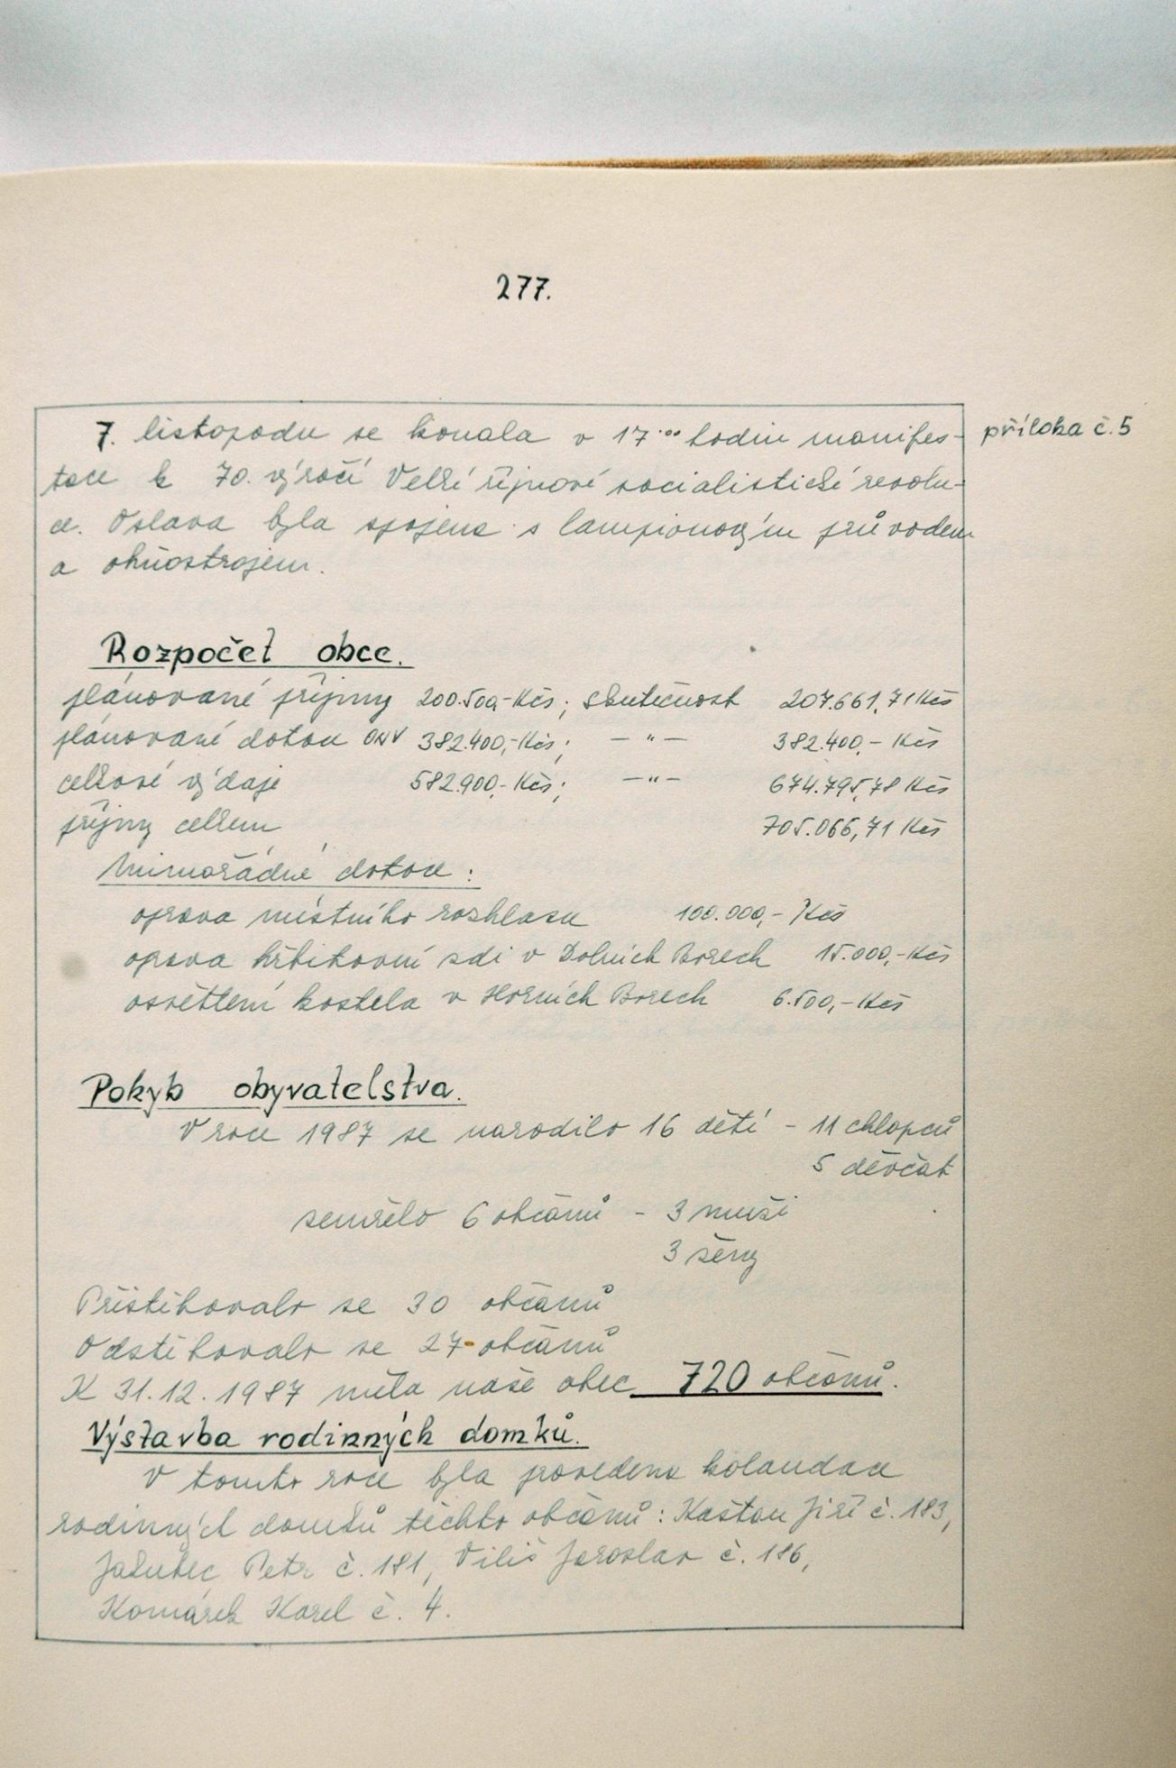 277.
7. listopadu se konala v 17.00 hodin manifes-
příloha č. 5
tace k 70. výročí Velké říjnové socialistické revolu-
ce. Oslava byla spojena s lampionovým průvodem
a ohňostrojem.
Rozpočet obce.
plánované příjmy 200.500,-Kčs; skutečnost 207.661,71 Kčs
plánované dotace ONV 382.400,-Kčs; —"— 382.400,- Kčs
celkové výdaje 582.900,- Kčs; —"— 674.795,78 Kčs
příjmy celkem 705.066,71 Kčs
Mimořádné dotace:
oprava místního rozhlasu 100.000,- Kčs
oprava hřbitovní zdi v Dolních Borech 15.000,-Kčs
osvětlení kostela v Horních Borech 6.500,- Kčs
Pohyb obyvatelstva.
V roce 1987 se narodilo 16 dětí - 11 chlapců
5 děvčat
zemřelo 6 občanů - 3 muži
3 ženy
Přistěhovalo se 30 občanů
Odstěhovalo se 27 občanů
K 31.12.1987 měla naše obec 720 občanů.
Výstavba rodinných domků.
V tomto roce byla provedena kolaudace
rodinných domků těchto občanů: Kaštan Jiří č. 183,
Jakubec Petr č. 181, Viliš Jaroslav č. 186,
Komárek Karel č. 4.